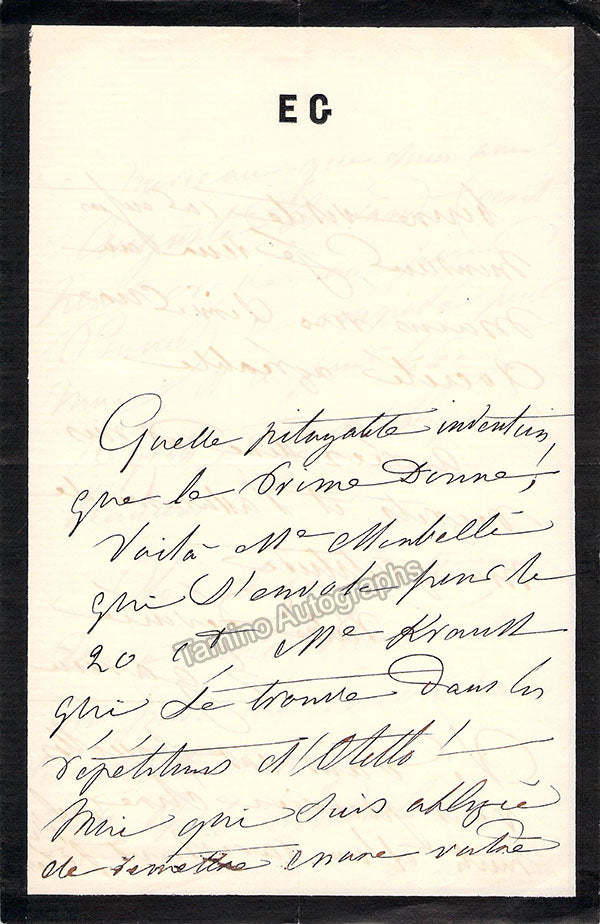 EG
Quelle pitoyable invention,
que le Prime Donne,
Voilà Me
qui s'envole pour le
20 et Me Krauss
qui se trouve dans les
répétitions d'Otello!
Moi qui suis obligée
de remettre encore votre
Tamino Autographs